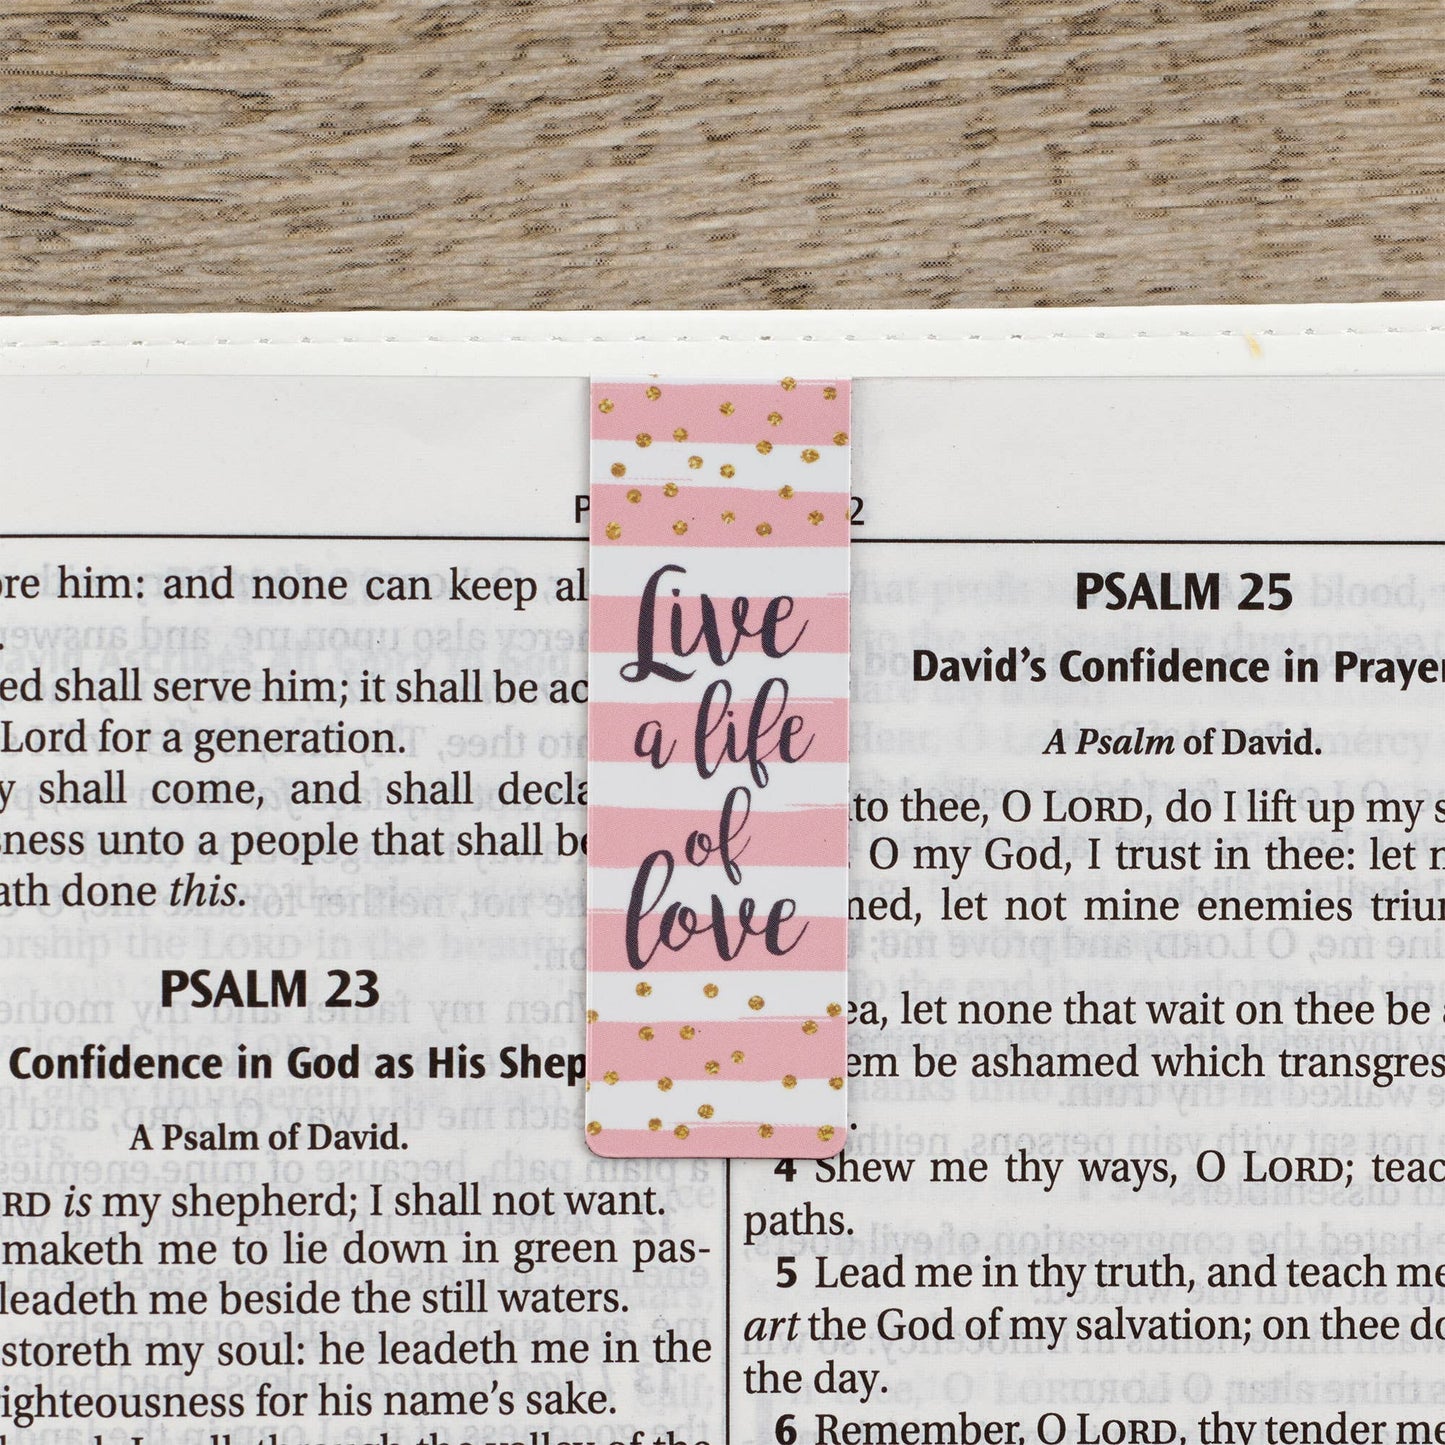 Live
a life
of
love
ore him: and none can keep al
ed shall serve him; it shall be ac
Lord for a generation.
y shall come, and shall decla
sness unto a people that shall be
ath done this.
PSALM 23
Confidence in God as His Shep
A Psalm of David.
ORD is my shepherd; I shall not want.
maketh me to lie down in green pas-
leadeth me beside the still waters.
storeth my soul: he leadeth me in the
righteousness for his name's sake.
PSALM 25
David's Confidence in Prayer
A Psalm of David.
to thee, O LORD, do I lift up my s
O my God, I trust in thee: let
med, let not mine enemies trium
ea, let none that wait on thee be
em be ashamed which transgress
4 Shew me thy ways, O LORD; teac
paths.
5 Lead me in thy truth, and teach me
art the God of my salvation; on thee do
the day.
6 Remember, O LORD, thy tender me